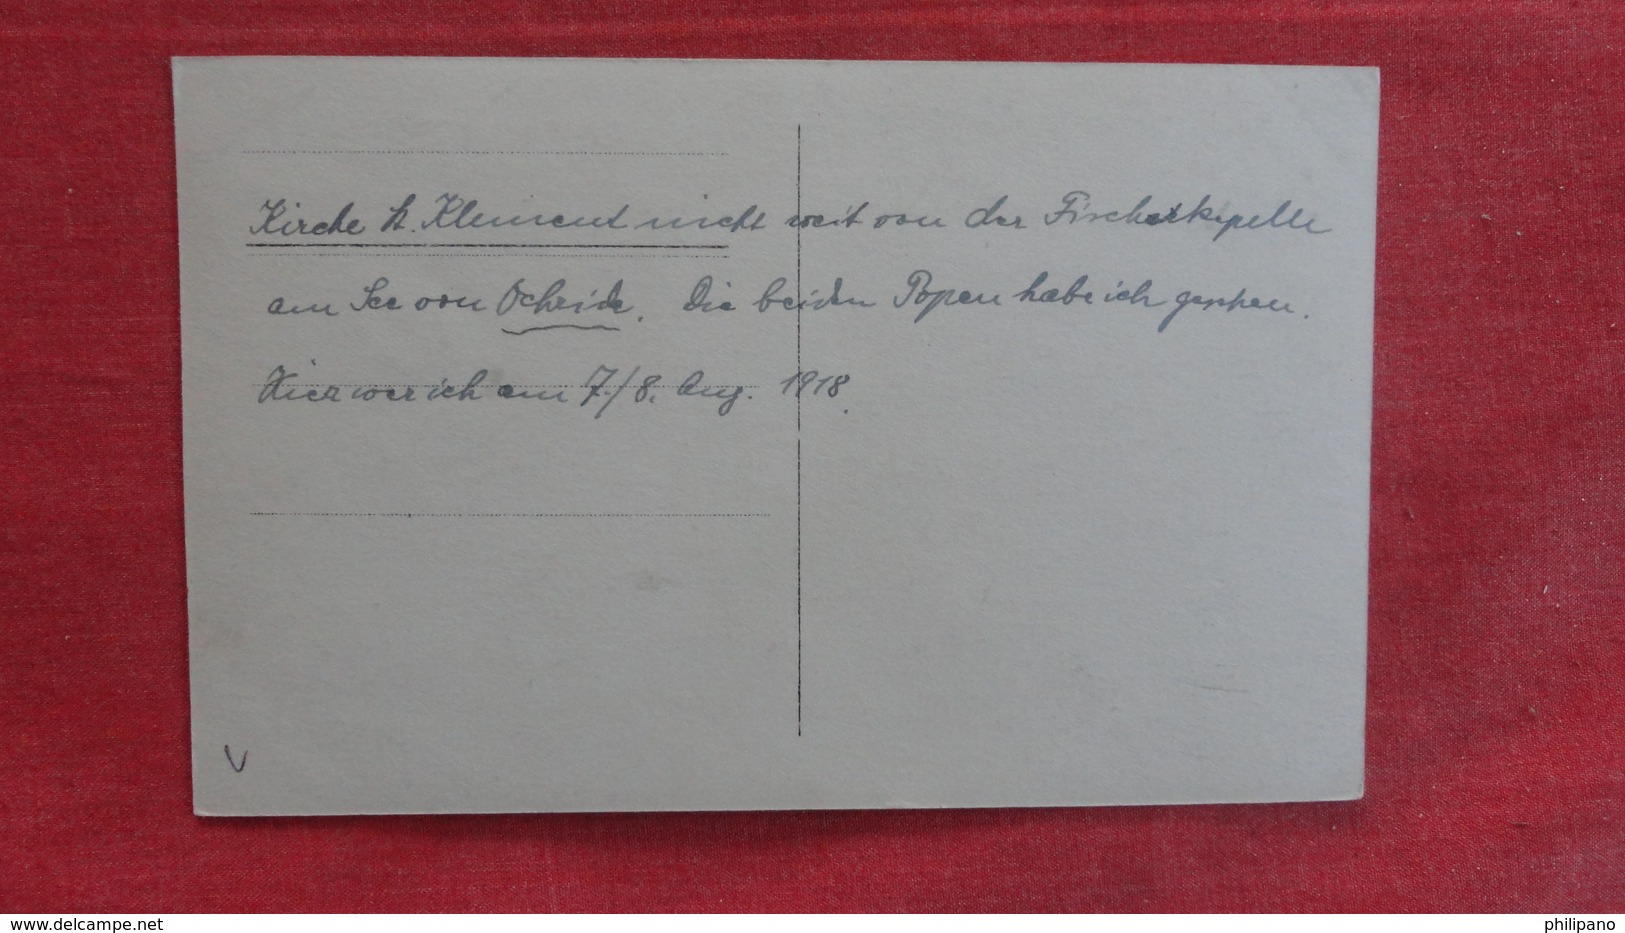 Kirche St. Klement nicht weit von der Fischerkapelle
am See von Ochride. Die beiden Popen habe ich gesehen.
Hier war ich am 7./8. Aug. 1918.
V
delcampe.net
philipano